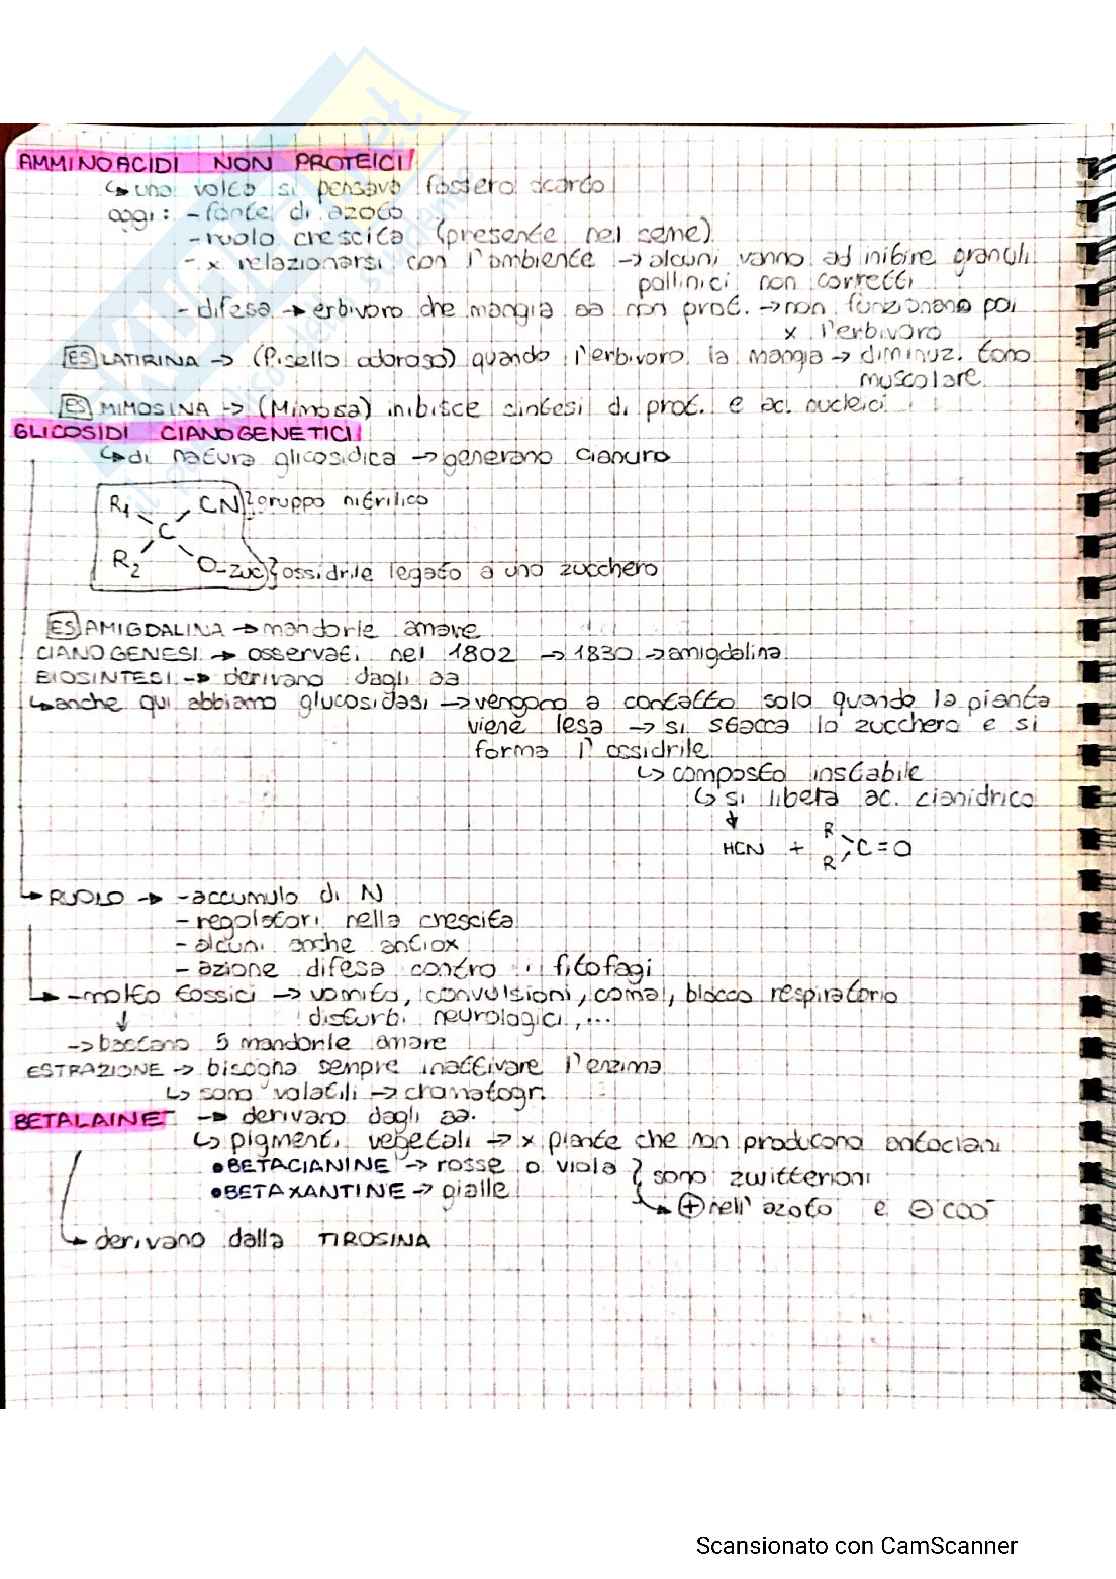 AMMINOACIDI NON PROTEICI
↳ una volta si pensava fossero scarto
oggi: - fonte di azoto
- ruolo crescita (presente nel seme)
- x relazionarsi con l'ambiente → alcuni vanno ad inibire granuli
pollinici non corretti
- difesa → erbivoro che mangia aa non prot. → non funzionano poi
x l'erbivoro
ES LATIRINA → (Pisello odoroso) quando l'erbivoro la mangia → diminuz. tono
muscolare
ES MIMOSINA → (Mimosa) inibisce sintesi di prot. e ac. nucleici
GLICOSIDI CIANOGENETICI
↳ di natura glicosidica → generano cianuro
R1 CN } gruppo nitrilico
C
R2 O-zuc } ossidrile legato a uno zucchero
ES AMIGDALINA → mandorle amare
CIANOGENESI → osservati nel 1802 → 1830 → amigdalina
BIOSINTESI → derivano dagli aa
↳ anche qui abbiamo glucosidasi → vengono a contatto solo quando la pianta
viene lesa → si stacca lo zucchero e si
forma l'ossidrile
↳ composto instabile
↳ si libera ac. cianidrico
↓
HCN + R R C=O
↳ RUOLO → - accumulo di N
- regolatori nella crescita
- alcuni anche antiox
- azione difesa contro i fitofagi
↳ - molto tossici → vomito, convulsioni, coma, blocco respiratorio
disturbi neurologici, ...
→ bastano 5 mandorle amare
ESTRAZIONE → bisogna sempre inattivare l'enzima
↳ sono volatili → cromatogr.
BETALAINE → derivano dagli aa.
↳ pigmenti vegetali → x piante che non producono antociani
• BETACIANINE → rosse o viola
• BETAXANTINE → gialle } sono zwitterioni
↳ ⊕ nell'azoto e ⊖ COO⁻
↳ derivano dalla TIROSINA
Scansionato con CamScanner